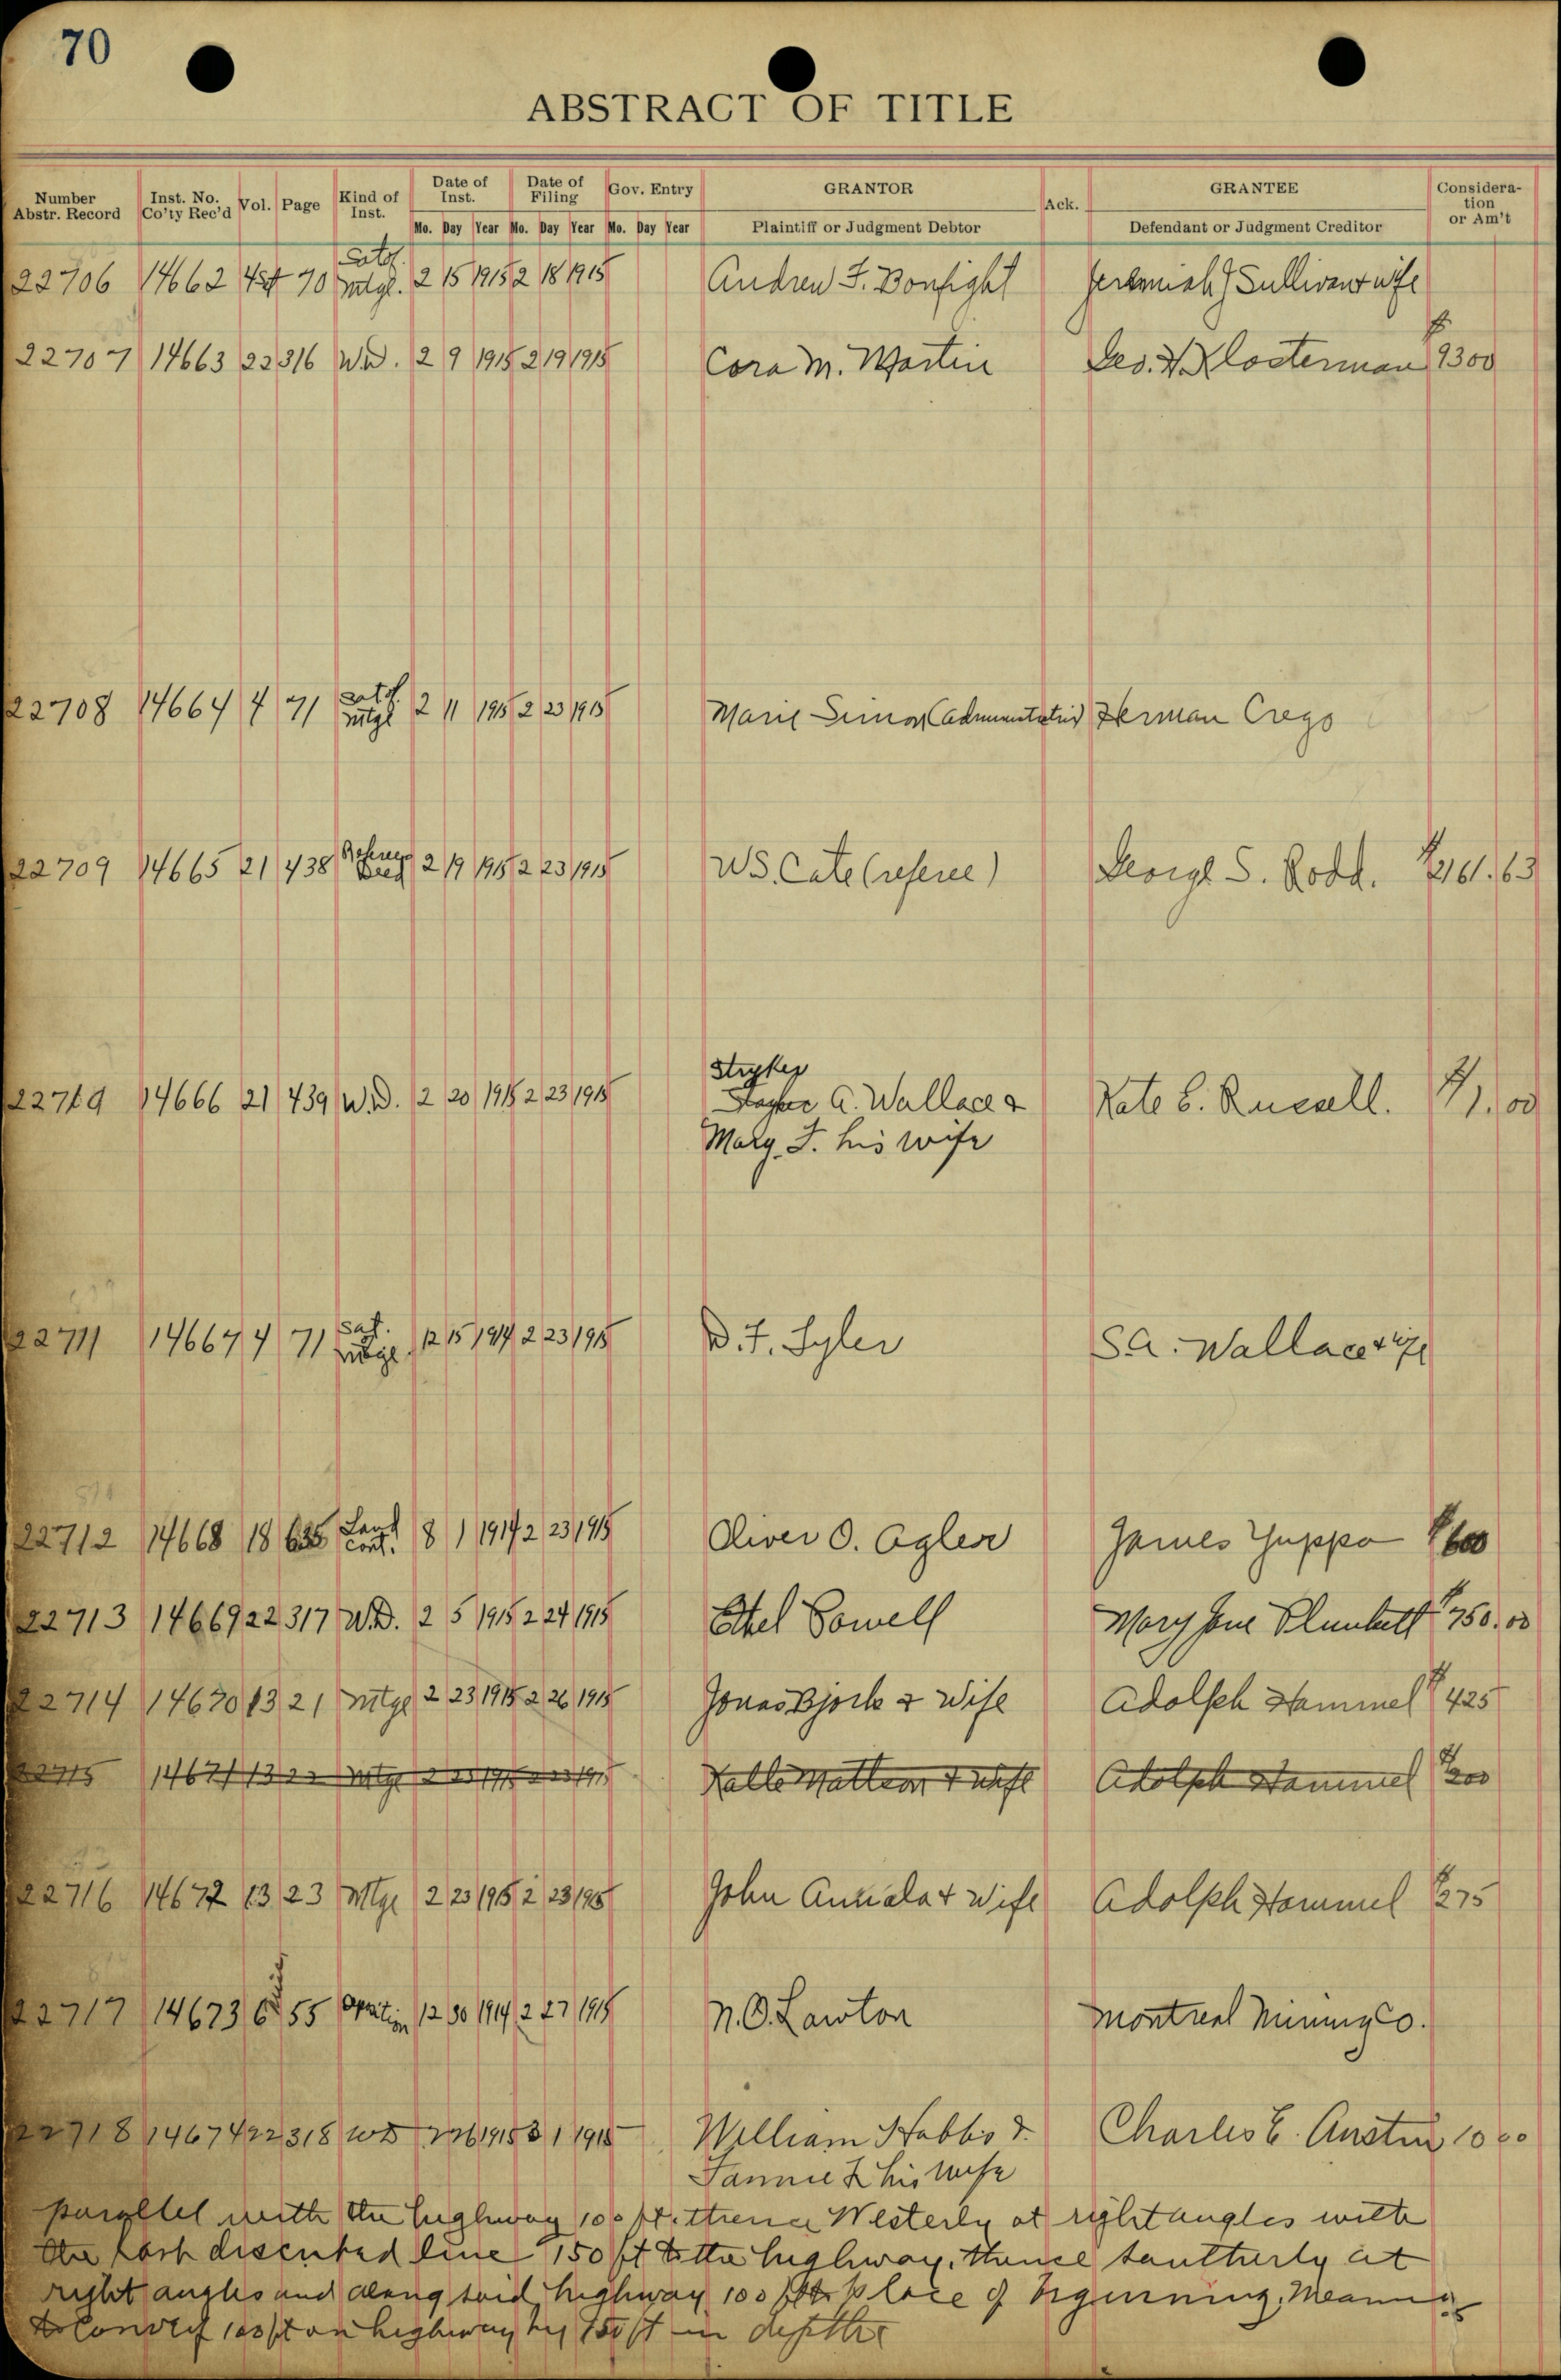 70
ABSTRACT OF TITLE
Number Abstr. Record Inst. No. Co'ty Rec'd Vol. Page Kind of Inst. Date of Inst. Date of Filing Gov. Entry GRANTOR Ack. GRANTEE Considera-tion or Am't
Mo. Day Year Mo. Day Year Mo. Day Year Plaintiff or Judgment Debtor Defendant or Judgment Creditor
22706 14662 4 70 Satof. mtge. 2 15 1915 2 18 1915 Andrew F. Bonfight Jeremiah J Sullivan & wife
22707 14663 22 316 W.D. 2 9 1915 2 19 1915 Cora M. Martin Geo. H. Klosterman $ 9300
22708 14664 4 71 satof. mtge 2 11 1915 2 23 1915 Marie Simon (administratrix) Herman Crego
22709 14665 21 438 Referees Deed 2 19 1915 2 23 1915 W.S. Cate (referee) George S. Rodd. $2161.63
Stryker
22710 14666 21 439 W.D. 2 20 1915 2 23 1915 A. Wallace & Kate E. Russell. $1.00
Mary F. his wife
22711 14667 4 71 Sat. mtge. 12 15 1914 2 23 1915 D.F. Tyler S.A. Wallace & wife
22712 14668 18 635 Land cont. 8 1 1914 2 23 1915 Oliver O. Agler James Yuppa $600
22713 14669 22 317 W.D. 2 5 1915 2 24 1915 Ethel Powell Mary Jane Plunkett $750.00
22714 14670 13 21 mtge 2 23 1915 2 26 1915 Jonas Bjork & wife Adolph Hammel $425
22715 14671 13 22 mtge 2 23 1915 2 23 1915 Kalle Mattson & wife Adolph Hammel $200
22716 14672 13 23 Mtge 2 23 1915 2 23 1915 John Annala & wife Adolph Hammel $275
22717 14673 6 Misc 55 Option 12 30 1914 2 27 1915 N.O. Lawton Montreal Mining Co.
22718 14674 22 318 WD 2 26 1915 3 1 1915 William Hobbs & Charles E. Austin 10 00
Fannie L his wife
parallel with the highway 100 ft. thence Westerly at right angles with
the last described line 150 ft to the highway, thence southerly at
right angles and along said highway 100 ft to place of beginning. Meaning
to Convey 100 ft on highway by 150 ft in depth